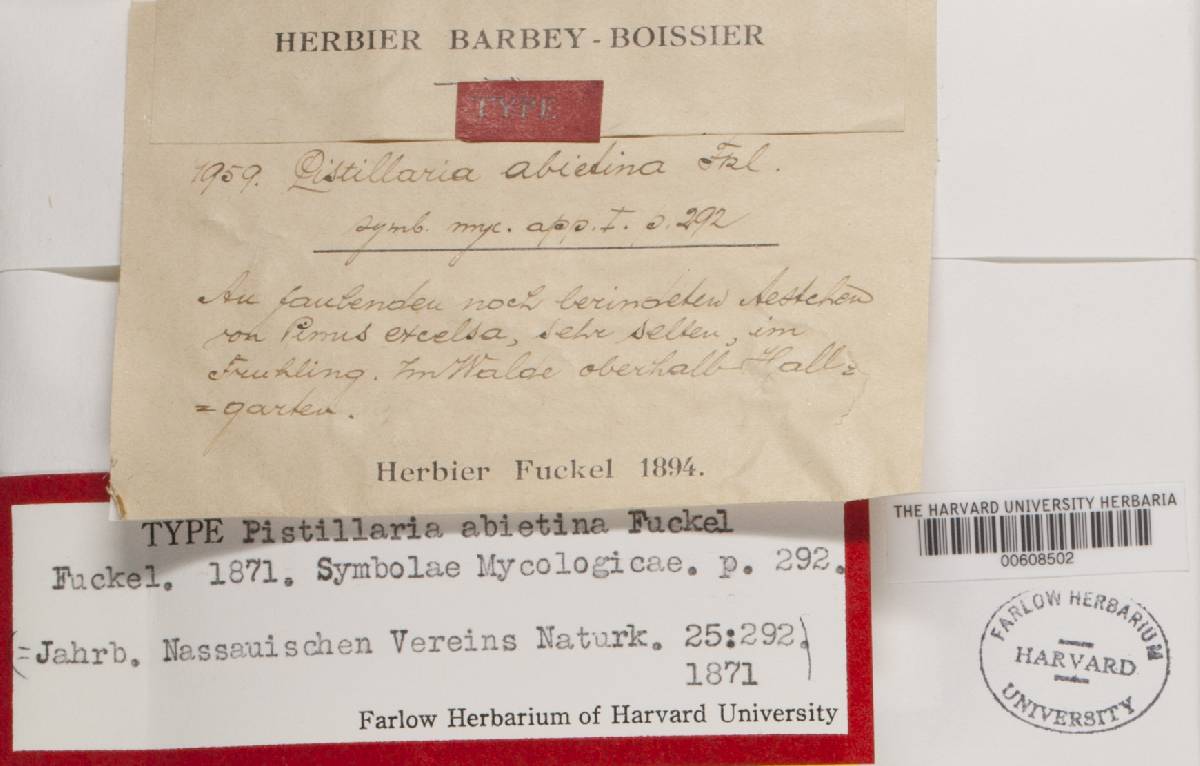 HERBIER BARBEY-BOISSIER
TYPE
1959. Pistillaria abietina Fkl.
symb. myc. app. I. p. 292
An faulenden noch berindeten Aestchen
von Pinus excelsa, sehr selten, im
Fruhling. Im Walde oberhalb Hall=
=garten.
Herbier Fuckel 1894.
TYPE Pistillaria abietina Fuckel
Fuckel. 1871. Symbolae Mycologicae. p. 292.
(=Jahrb. Nassauischen Vereins Naturk. 25:292.)
1871
Farlow Herbarium of Harvard University
THE HARVARD UNIVERSITY HERBARIA
00608502
FARLOW HERBARIUM
HARVARD
UNIVERSITY